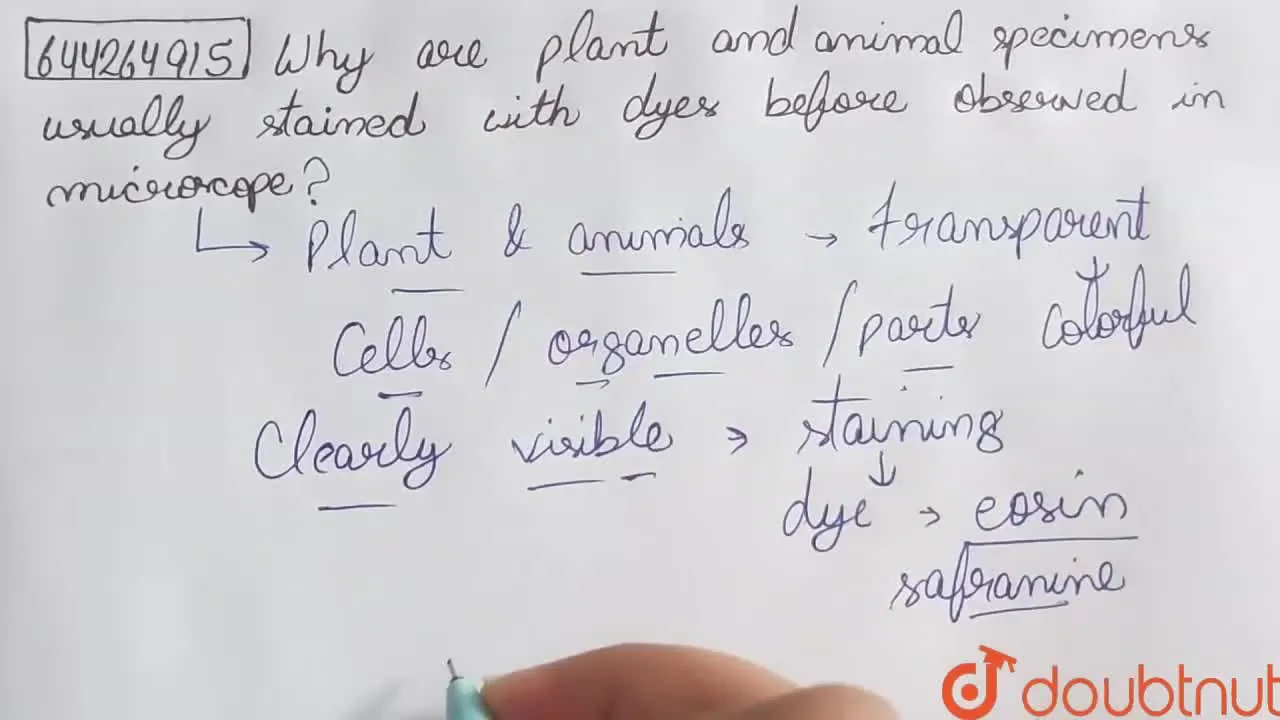 644264915 Why are plant and animal specimens
usually stained with dyes before observed in
microscope?
Plant & animals → transparent
Cells / organelles / parts colorful
Clearly visible → staining
dye → eosin
safranine
doubtnut